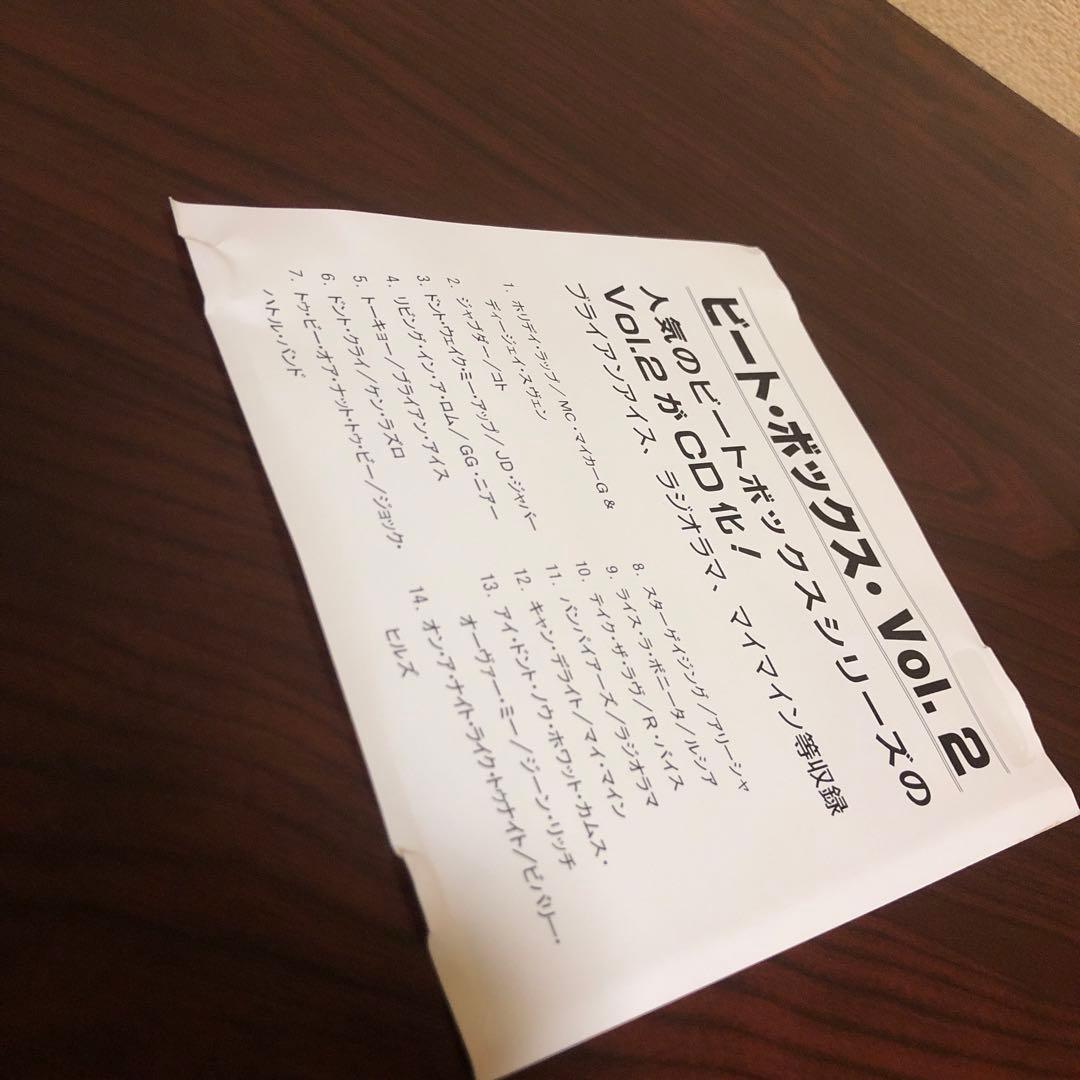 ビート・ボックス・Vol. 2
人気のビートボックスシリーズの
Vol.2がCD化!
ブライアンアイス、ラジオラマ、マイマイン等収録
1. ホリデイ・ラップ／MC・マイカーG &
ディージェイ・スヴェン
2. ジャブダー／コト
3. ドント・ウェイク・ミー・アップ／JD・ジャバー
4. リビング・イン・ア・ロム／GG・ニアー
5. トーキョー／ブライアン・アイス
6. ドント・クライ／ケン・ラズロ
7. トゥ・ビー・オア・ナット・トゥ・ビー／ジョック・
ハトル・バンド
8. スターゲイジング／アリーシャ
9. ライス・ラ・ボニータ／ルシア
10. テイク・ザ・ラヴ／R・バイス
11. バンパイアーズ／ラジオラマ
12. キャン・デライト／マイ・マイン
13. アイ・ドント・ノウ・ホワット・カムス・
オーヴァー・ミー／ジーン・リッチ
14. オン・ア・ナイト・ライク・トゥナイト／ビバリー・
ヒルズ